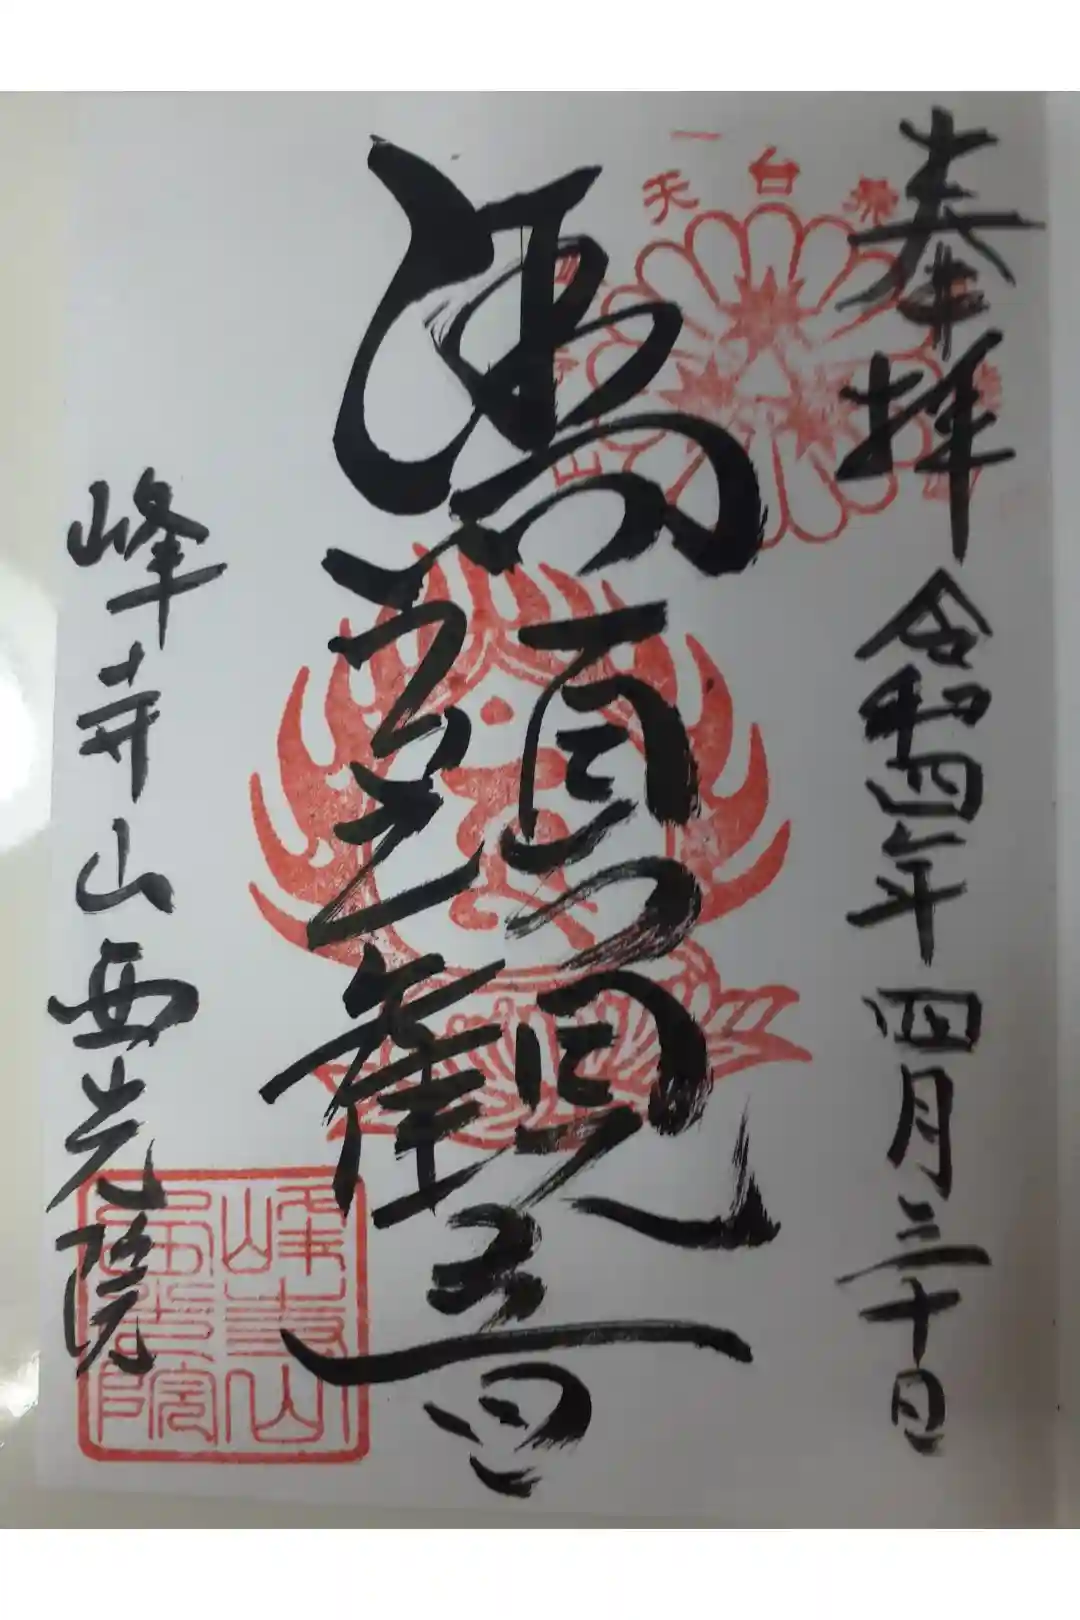 奉拝
令和四年四月三十日
天台宗
馬頭観音
峰寺山西光院
峰寺山
西光院